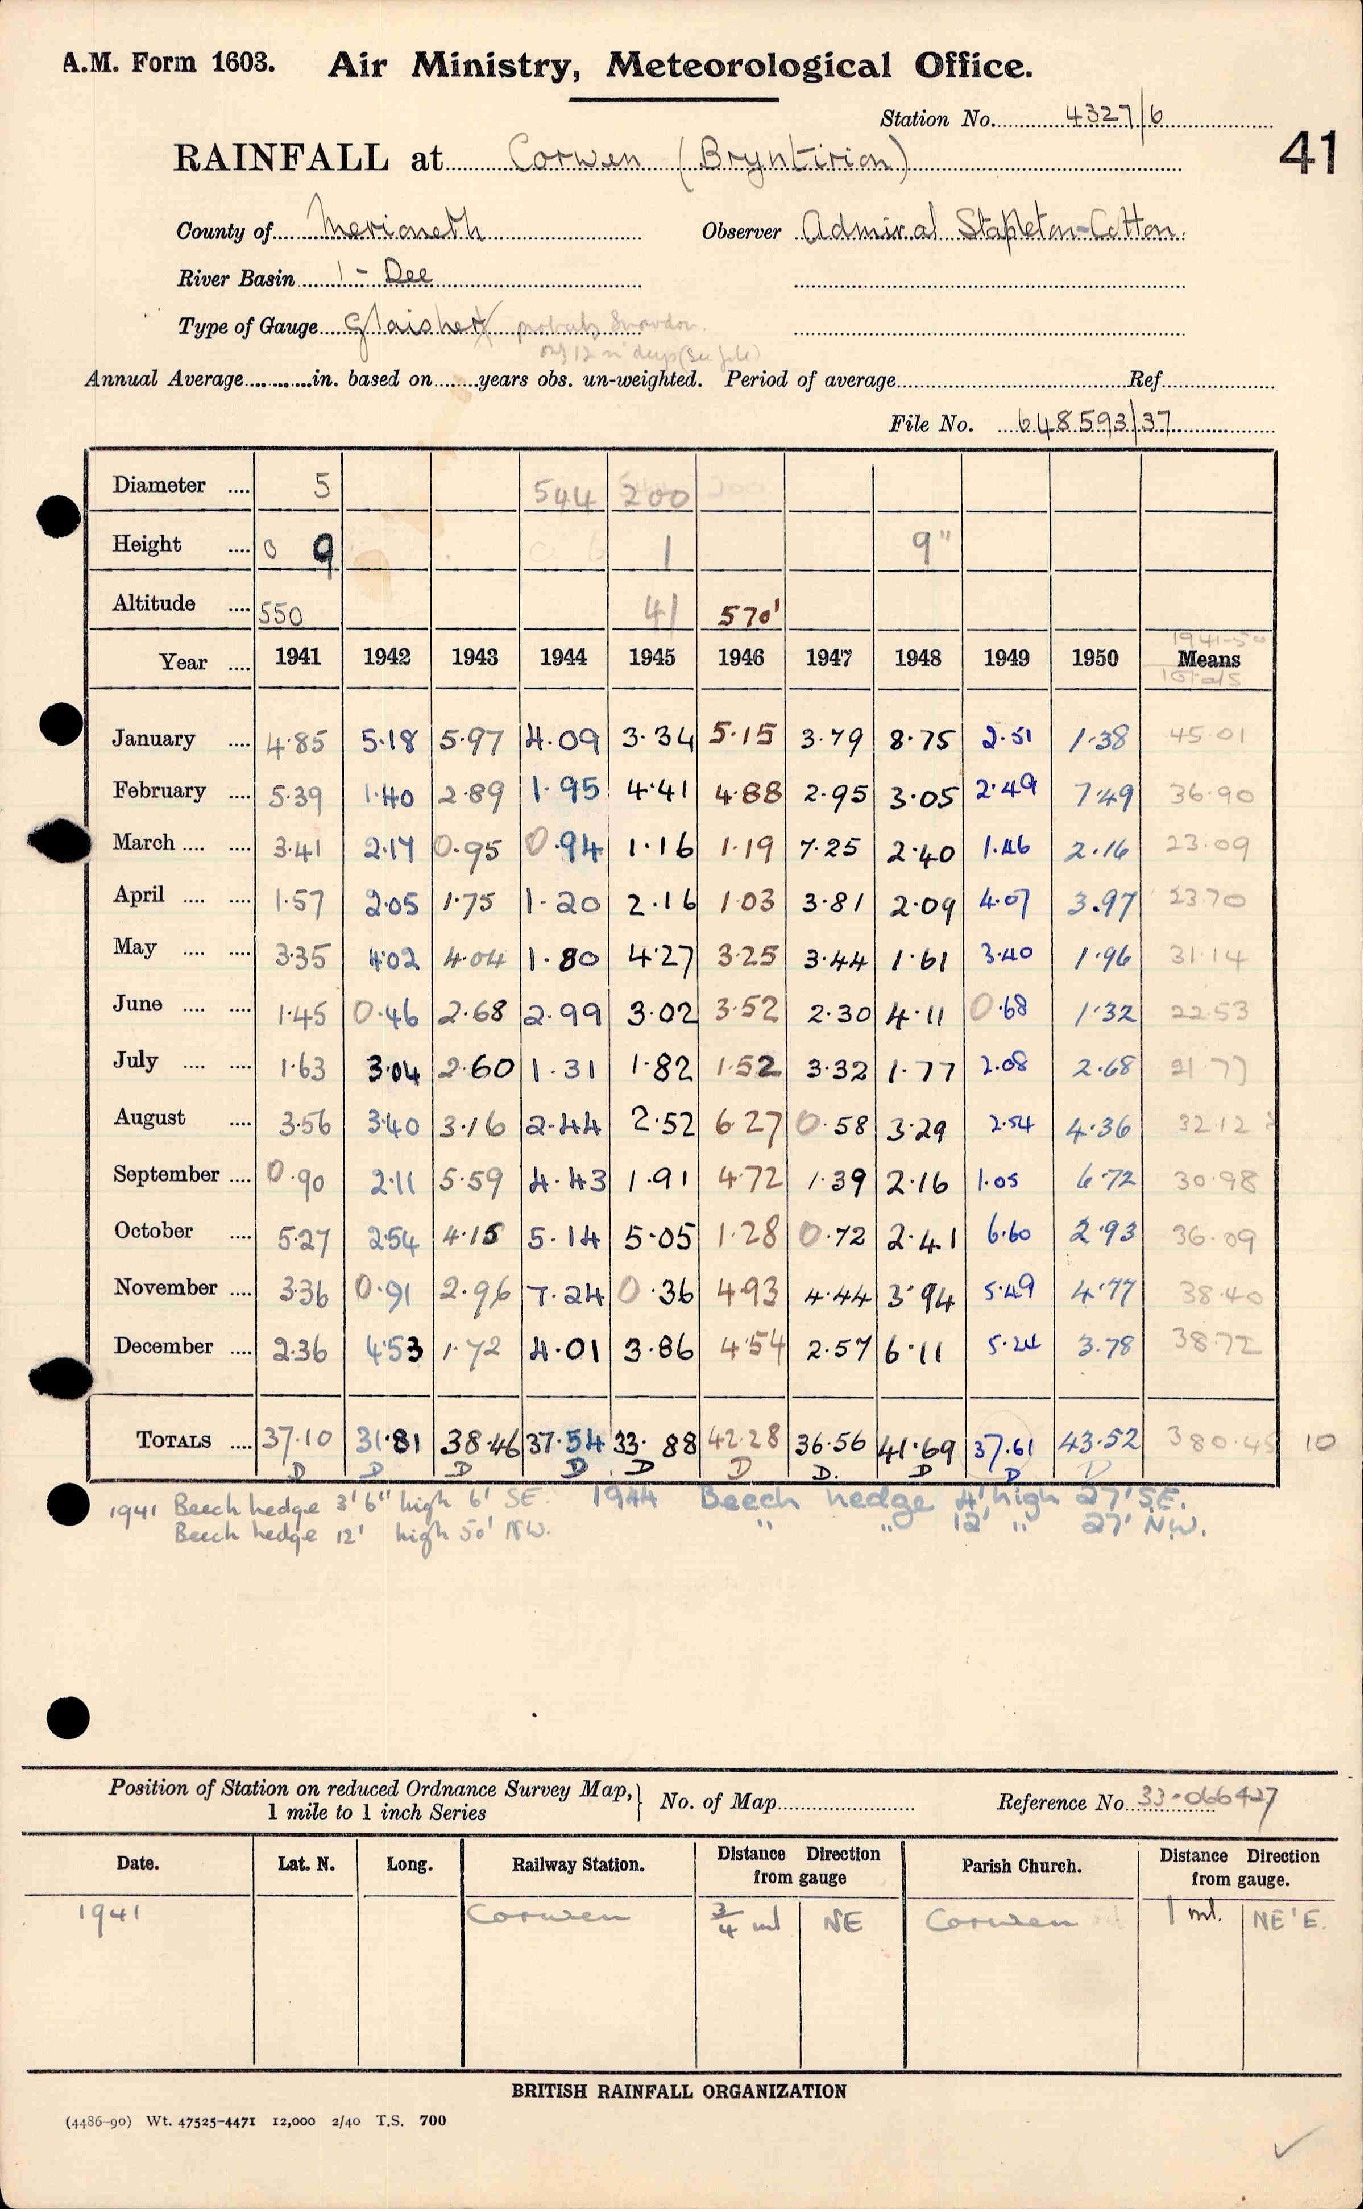 A.M. Form 1603. Air Ministry, Meteorological Office.
Station No. 4327/6
41
RAINFALL at Corwen (Bryntirion)
County of Merioneth Observer Admiral Stapleton-Cotton.
River Basin 1 - Dee
Type of Gauge Glaisher probably Snowdon.
only 12 in deep (see file)
Annual Average in. based on years obs. un-weighted. Period of average Ref
File No. 648593/37
Diameter .... 5 544 200
Height .... 0 9 1 9"
Altitude .... 550 41 570'
1941-50
Year .... 1941 1942 1943 1944 1945 1946 1947 1948 1949 1950 Means
Totals
January .... 4.85 5.18 5.97 4.09 3.34 5.15 3.79 8.75 2.51 1.38 45.01
February .... 5.39 1.40 2.89 1.95 4.41 4.88 2.95 3.05 2.49 7.49 36.90
March .... .... 3.41 2.17 0.95 0.94 1.16 1.19 7.25 2.40 1.46 2.16 23.09
April .... .... 1.57 2.05 1.75 1.20 2.16 1.03 3.81 2.09 4.07 3.97 23.70
May .... .... 3.35 4.02 4.04 1.80 4.27 3.25 3.44 1.61 3.40 1.96 31.14
June .... .... 1.45 0.46 2.68 2.99 3.02 3.52 2.30 4.11 0.68 1.32 22.53
July .... .... 1.63 3.04 2.60 1.31 1.82 1.52 3.32 1.77 2.08 2.68 21.77
August .... 3.56 3.40 3.16 2.44 2.52 6.27 0.58 3.29 2.54 4.36 32.12
September .... 0.90 2.11 5.59 4.43 1.91 4.72 1.39 2.16 1.05 6.72 30.98
October .... 5.27 2.54 4.15 5.14 5.05 1.28 0.72 2.41 6.60 2.93 36.09
November .... 3.36 0.91 2.96 7.24 0.36 4.93 4.44 3.94 5.49 4.77 38.40
December .... 2.36 4.53 1.72 4.01 3.86 4.54 2.57 6.11 5.24 3.78 38.72
TOTALS .... 37.10 31.81 38.46 37.54 33.88 42.28 36.56 41.69 37.61 43.52 380.45 10
D D D D D D D. D D D
1941 Beech hedge 3' 6" high 6' SE. 1944 Beech hedge 4' high 27' S.E.
Beech hedge 12' high 50' NW. " " 12' " 27' N.W.
Position of Station on reduced Ordnance Survey Map, 1 mile to 1 inch Series } No. of Map Reference No. 33-066427
Date. Lat. N. Long. Railway Station. Distance Direction from gauge Parish Church. Distance Direction from gauge.
1941 Corwen 3/4 ml NE Corwen 1 ml. NE'E.
BRITISH RAINFALL ORGANIZATION
(4486-90) Wt. 47525-4471 12,000 2/40 T.S. 700